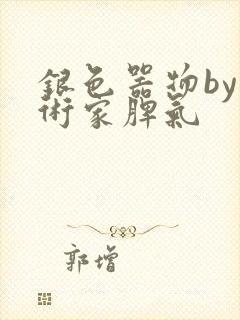 銀色器物by
術家脾氣
郭增